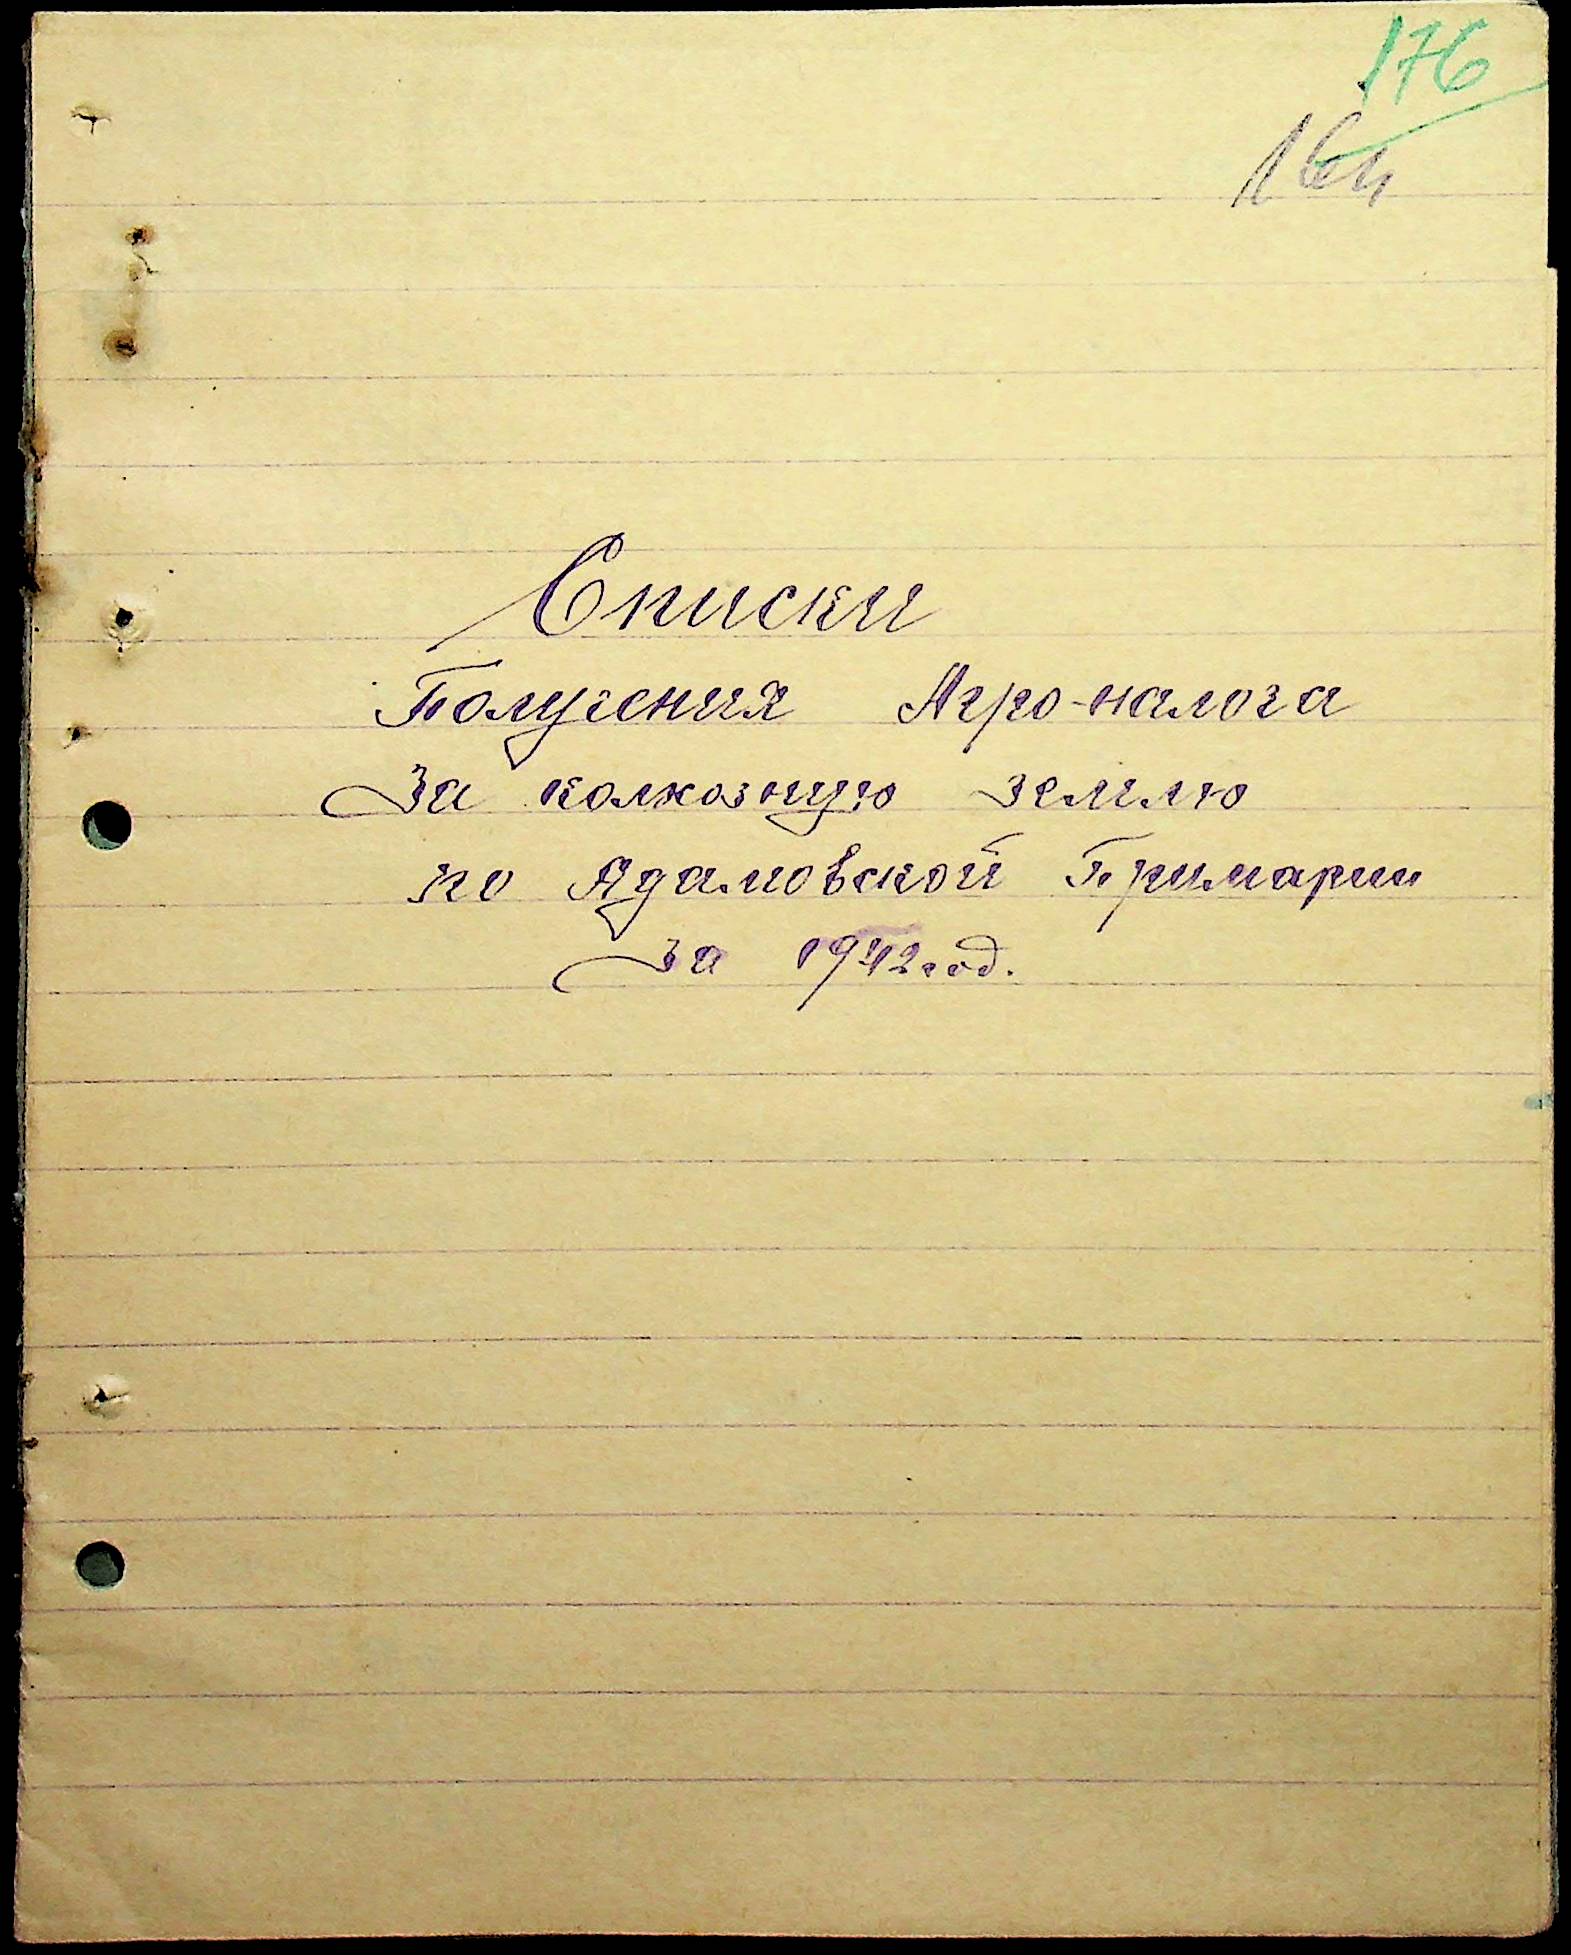 176
164
Списки
Получения Агро-налога
За колхозную землю
по Адамовской Примарии
за 1942 год.